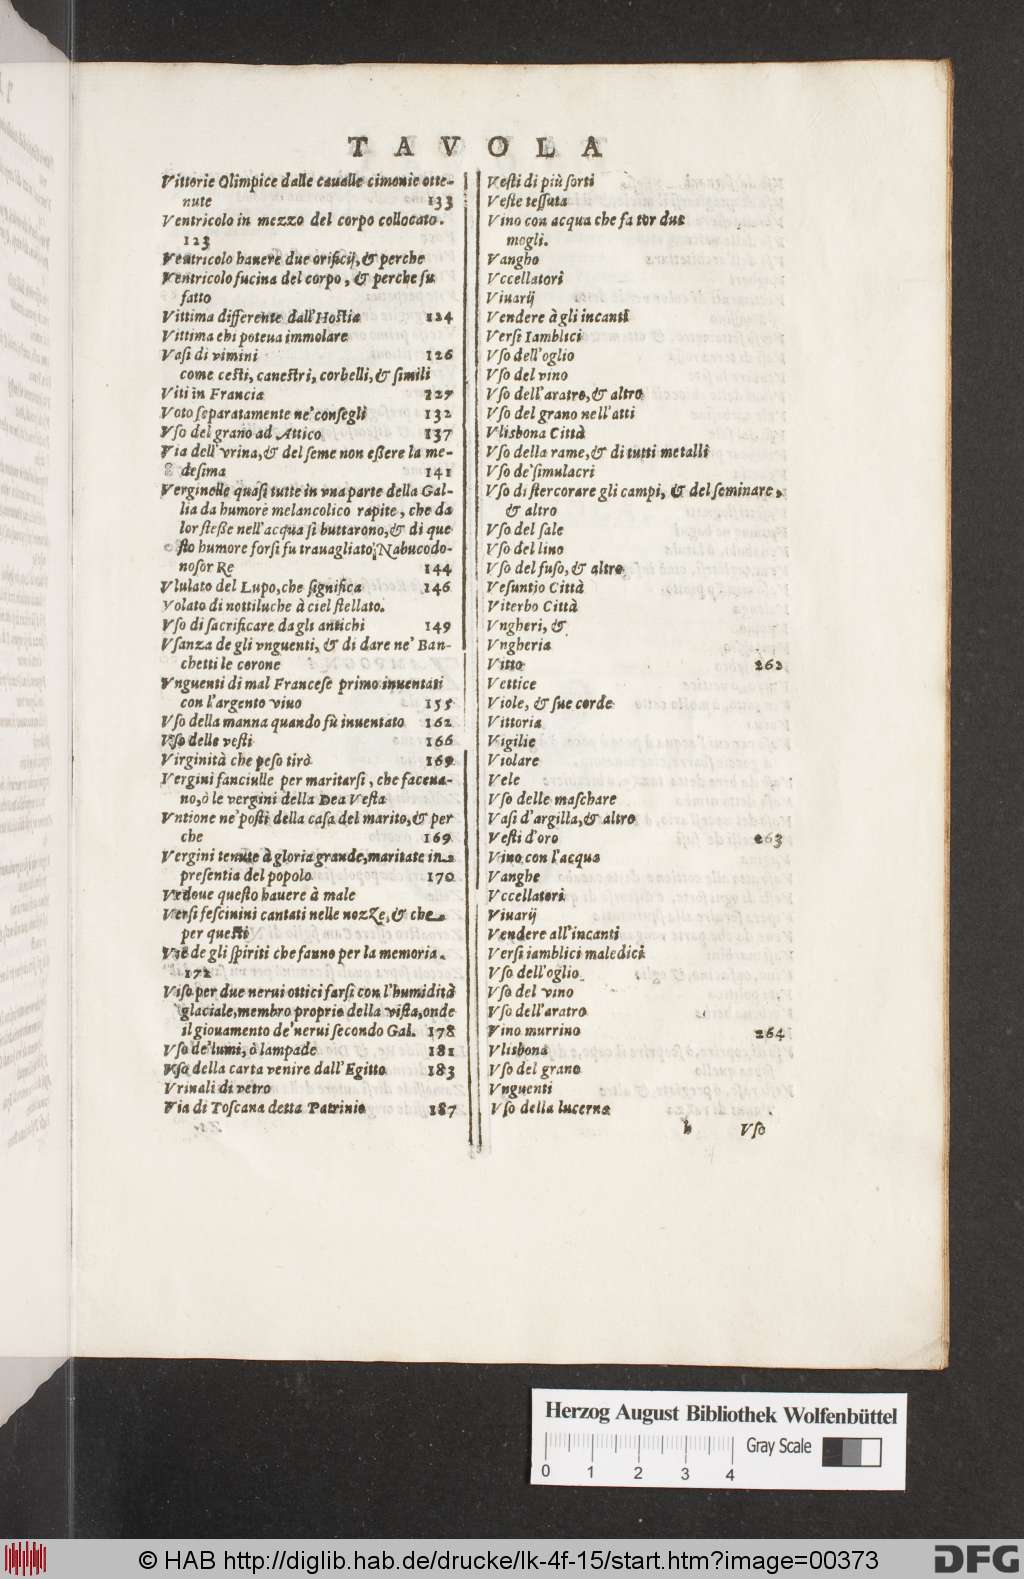 TAVOLA
Vittorie Olimpice dalle caualle cimonie otte-
nute 133
Ventricolo in mezzo del corpo collocato.
123
Ventricolo hauere due orificij, & perche
Ventricolo fucina del corpo, & perche fu
fatto
Vittima differente dall'Hostia 124
Vittima chi poteua immolare
Vasi di vimini 126
come cesti, canestri, corbelli, & simili
Viti in Francia 127
Voto separatamente ne' consegli 132
Vso del grano ad Attico 137
Via dell'vrina, & del seme non eßere la me-
desima 141
Verginelle quasi tutte in vna parte della Gal-
lia da humore melancolico rapite, che da
lor steße nell'acqua si buttarono, & di que
sto humore forsi fu trauagliato Nabucodo-
nosor Re 144
Vlulato del Lupo, che significa 146
Volato di nottiluche à ciel stellato.
Vso di sacrificare da gli antichi 149
Vsanza de gli vnguenti, & di dare ne' Ban-
chetti le corone
Vnguenti di mal Francese primo inuentati
con l'argento viuo 155
Vso della manna quando fù inuentato 162
Vso delle vesti 166
Virginità che peso tirò 169
Vergini fanciulle per maritarsi, che faceua-
no, ò le vergini della Dea Vesta
Vntione ne' posti della casa del marito, & per
che 169
Vergini tenute à gloria grande, maritate in
presentia del popolo 170
Vedoue questo hauere à male
Versi fescinini cantati nelle nozze, & che
per questi
Vie de gli spiriti che fanno per la memoria.
172
Viso per due nerui ottici farsi con l'humidità
glaciale, membro proprio della vista, onde
il giouamento de' nerui secondo Gal. 178
Vso de' lumi, ò lampade 181
Vso della carta venire dall'Egitto 183
Vrinali di vetro
Via di Toscana detta Patrinio 187
Vesti di più sorti
Veste tessuta
Vino con acqua che fa tor due
mogli.
Vangho
Vccellatori
Viuarij
Vendere à gli incanti
Versi Iamblici
Vso dell'oglio
Vso del vino
Vso dell'aratro, & altro
Vso del grano nell'atti
Vlisbona Città
Vso della rame, & di tutti metalli
Vso de' simulacri
Vso di stercorare gli campi, & del seminare,
& altro
Vso del sale
Vso del lino
Vso del fuso, & altro
Vesuntio Città
Viterbo Città
Vngheri, &
Vngheria
Vitto 262
Vettice
Viole, & sue corde
Vittoria
Vigilie
Violare
Vele
Vso delle maschare
Vasi d'argilla, & altro
Vesti d'oro 263
Vino con l'acqua
Vanghe
Vccellatori
Viuarij
Vendere all'incanti
Versi iamblici maledici
Vso dell'oglio
Vso del vino
Vso dell'aratro
Vino murrino 264
Vlisbona
Vso del grano
Vnguenti
Vso della lucerna
b Vso
Herzog August Bibliothek Wolfenbüttel
Gray Scale
0 1 2 3 4
© HAB http://diglib.hab.de/drucke/lk-4f-15/start.htm?image=00373
DFG